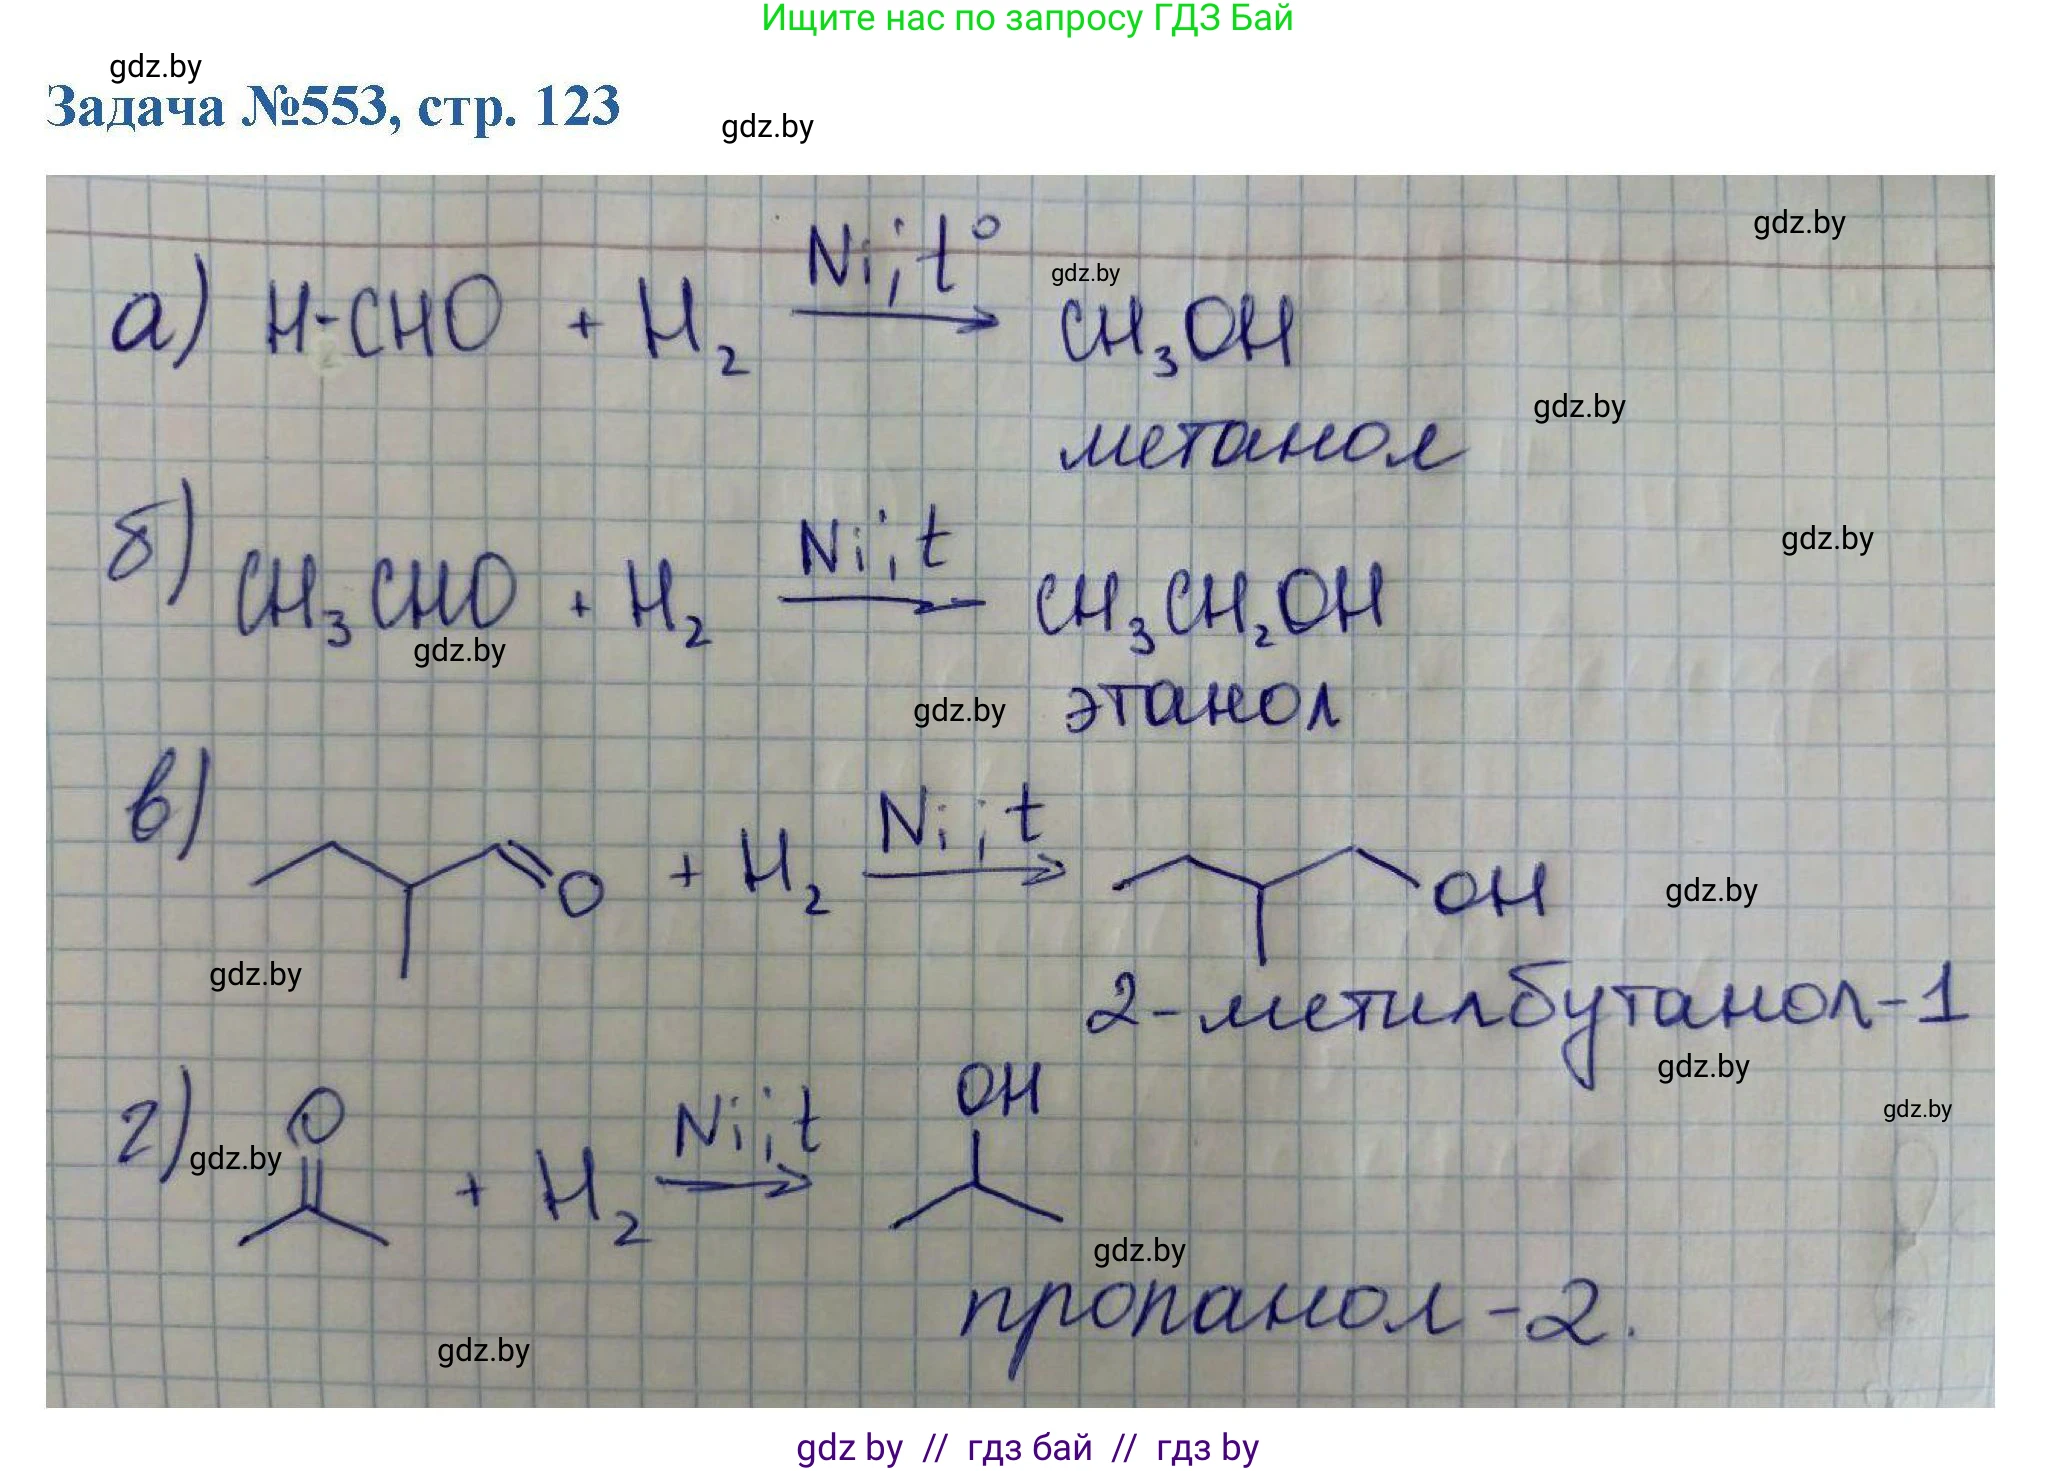 Ищите нас по запросу ГДЗ Бай
gdz.by
Задача №553, стр. 123
gdz.by
gdz.by
а) H-CHO + H₂ Ni; t° CH₃OH
gdz.by
метанол
gdz.by
б) CH₃CHO + H₂ Ni; t CH₃CH₂OH
gdz.by
gdz.by
этанол
gdz.by
в) O + H₂ Ni; t OH
gdz.by
gdz.by
2-метилбутанол-1
gdz.by
г) O + H₂ Ni; t OH
gdz.by
gdz.by
gdz.by
пропанол-2.
gdz.by
gdz by // гдз бай // гдз by